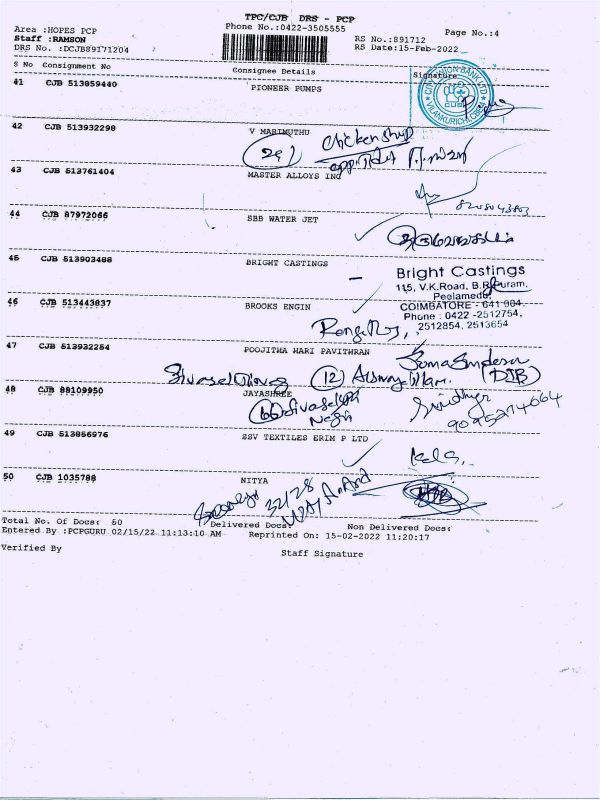 TPC/CJB DRS - PCP
Area :HOPES PCP
Phone No.:0422-3505555
Page No.:4
Staff :RAMSON
RS No.:891712
DRS No. :DCJB89171204
RS Date:15-Feb-2022
S No Consignment No Consignee Details Signature
CITY UNION BANK LTD
VILANKURICHI
41 CJB 513859440 PIONEER PUMPS
42 CJB 513932298 V MARIMUTHU
chicken shop
opposite
43 CJB 513761404 MASTER ALLOYS INC
44 CJB 87972066 SBB WATER JET
45 CJB 513903488 BRIGHT CASTINGS
Bright Castings
115, V.K.Road, B.R.Puram,
Peelamedu,
COIMBATORE - 641 004.
Phone : 0422 -2512754,
2512854, 2513654
46 CJB 513443837 BROOKS ENGIN
47 CJB 513932254 POOJITHA HARI PAVITHRAN
(12)
(DIB)
48 CJB 88109950 JAYASHREE
Nagar
49 CJB 513856976 SSV TEXTILES ERIM P LTD
Kala
50 CJB 1035788 NITYA
32/28
Total No. Of Docs: 50 Delivered Docs: Non Delivered Docs:
Entered By :PCPGURU 02/15/22 11:13:10 AM Reprinted On: 15-02-2022 11:20:17
Verified By
Staff Signature